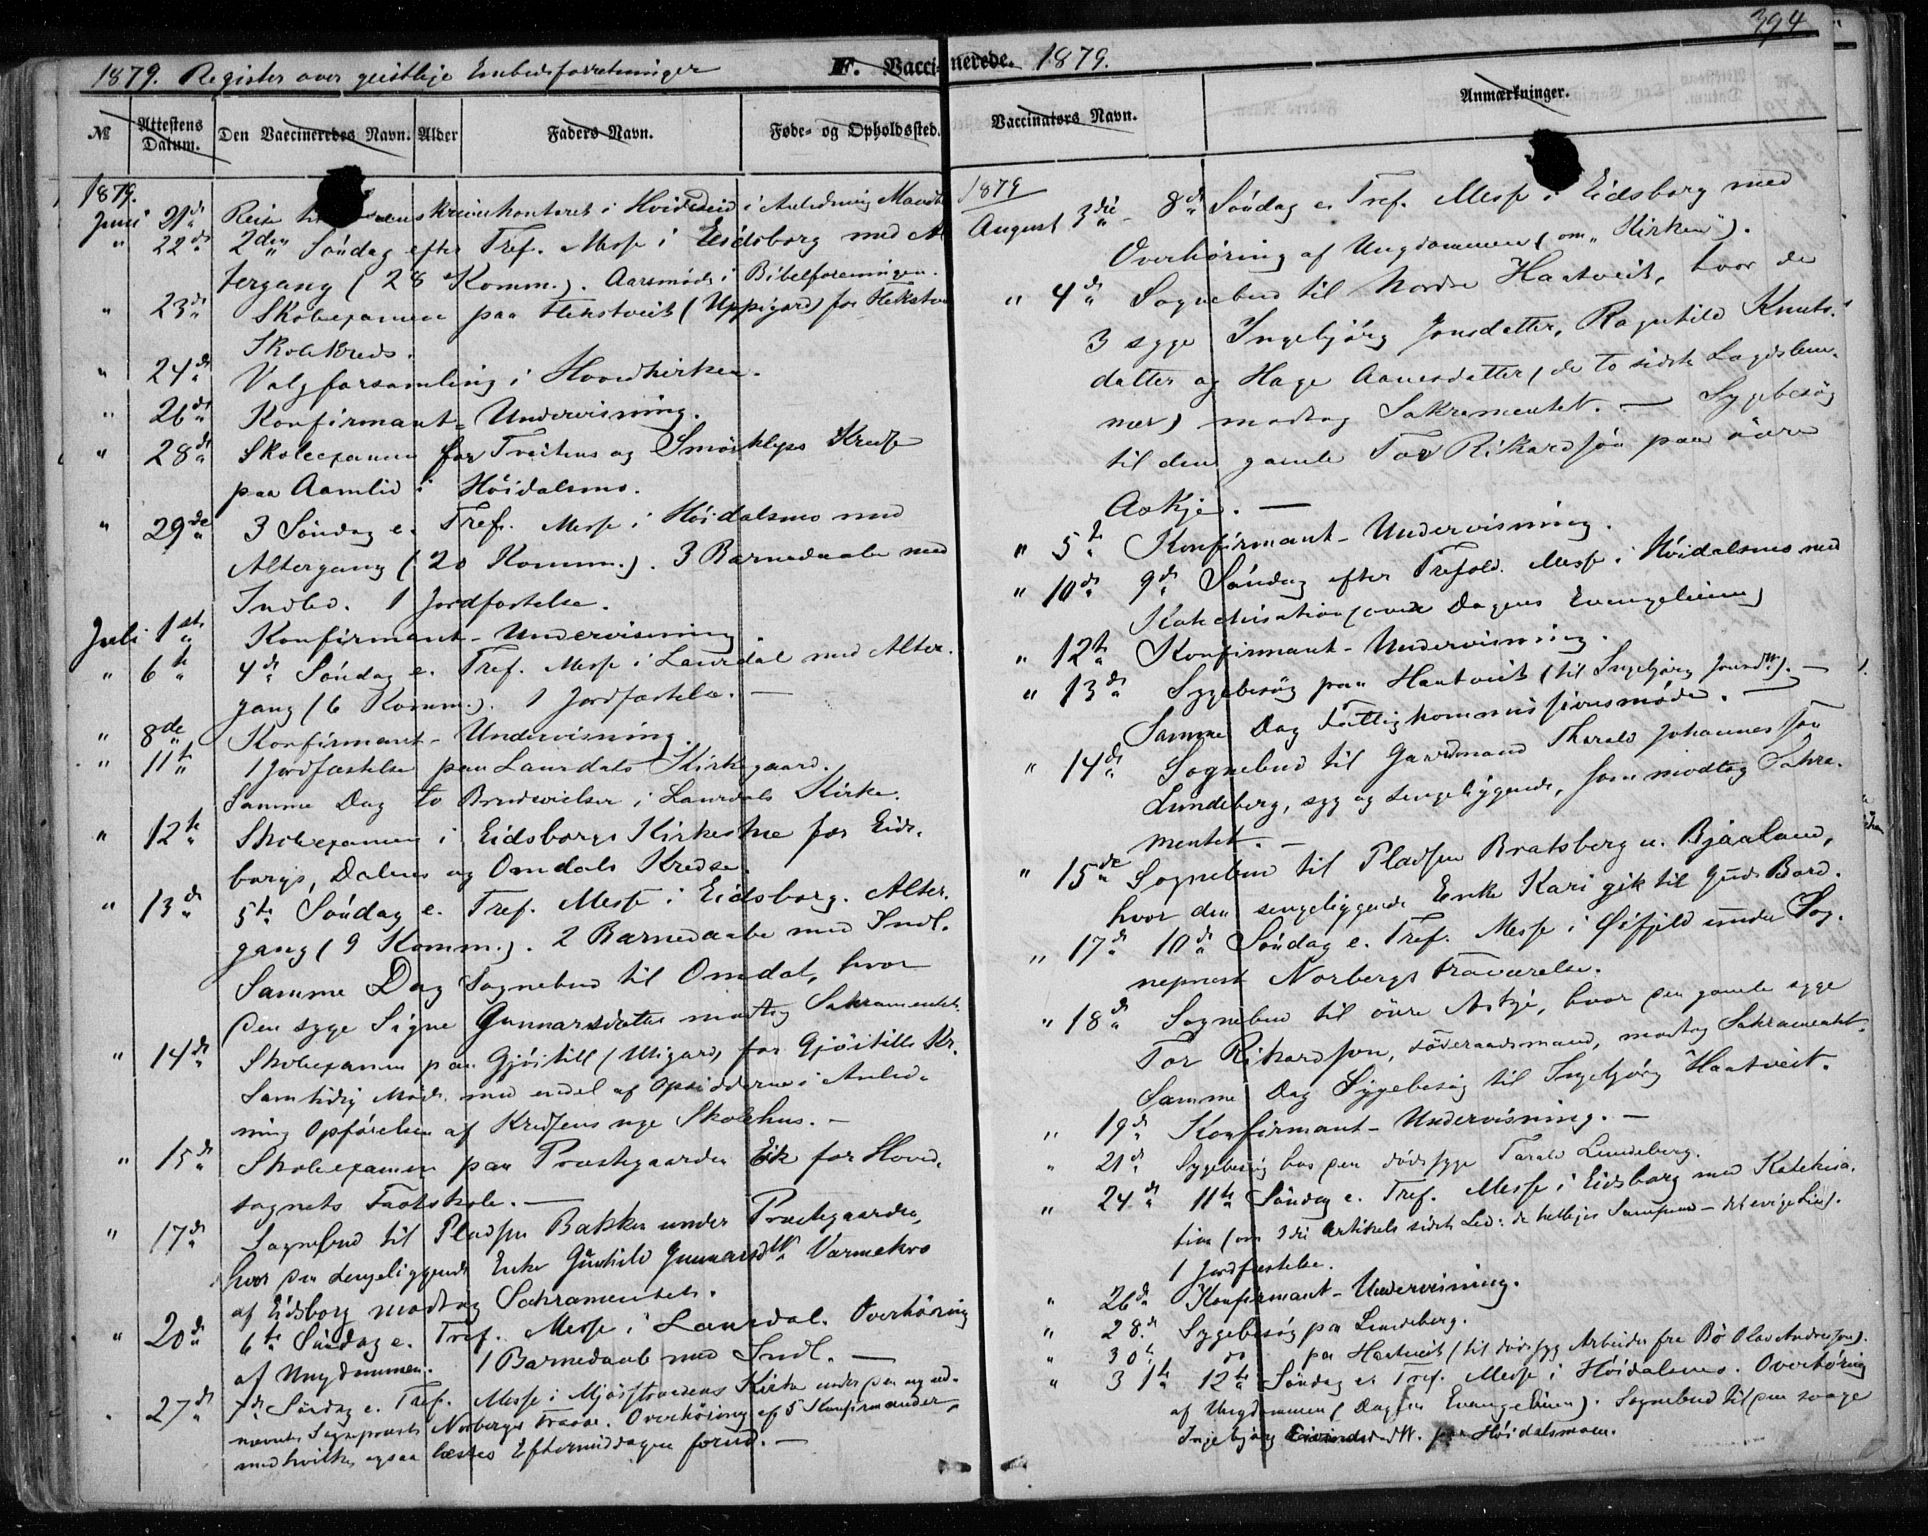 394
1879. Register over geistlige Embedsforretninger
F. Vaccinerede. 1879.
№ Attestens Datum. Den Vaccineredes Navn. Alder Faders Navn. Føde- og Opholdssted.
Vaccinators Navn. Anmærkninger.
1879.
Juni 21de Reise skriverkontoret i Hvideseid i Anledning
" 22de 2den Søndag efter Tref. Messe i Eidsborg med Al
tergang (28 Komm.). Aarsmøde i Bibelforeningen.
" 23de Skoleexamen paa Flekstveit (Uppigard) for
Skolekreds.
" 24de Valgforsamling i Hovedkirken.
" 26de Konfirmant-Undervisning.
" 28de Skoleexamen for Tveitens og Smørkleps Kredse
paa Aamlid i Høidalsmo.
" 29de 3 Søndag e. Tref. Messe i Høidalsmo med
Altergang (20 Komm.). 3 Barnedaabe med
Indled. 1 Jordfæstelse.
Juli 1ste Konfirmant-Undervisning.
" 6te 4de Søndag e. Tref. Messe i Laurdal med Alter-
gang (6 Komm.). 1 Jordfæstelse. —
" 8de Konfirmant-Undervisning.
" 11te 1 Jordfæstelse paa Laurdals Kirkegaard.
Samme Dag to Brudevielser i Laurdals Kirke.
" 12te Skoleexamen i Eidsborgs Kirkestue for Eids-
borgs, Dalens og Omdals Kredse.
" 13de 5te Søndag e. Tref. Messe i Eidsborg. Alter-
gang (9 Komm.). 2 Barnedaabe med Indl.
Samme Dag Sognebud til Omdal, hvor
den syge Signe Gunnarsdatter modtog Sakramentet.
" 14de Skoleexamen paa Gjøitill (Utigard) for Gjøitills Kr.
Samtidig Møde med endel af Opsidderne i Anled-
ning Opførelsen af Kredsens nye Skolehus. —
" 15de Skoleexamen paa Præstegaarden Eik for Hoved-
sognets Fastskole. —
" 17de Sognebud til Pladsen Bakken under Præstegaarden,
hvor den sengeliggende Enke Gunhild Gunnarsdtr
af Eidsborg modtog Sakramentet.
" 20de 6te Søndag e. Tref. Messe i Laurdal. Overhøring
af Ungdommen. 1 Barnedaab med Indl. —
" 27de 7de Søndag e. Tref. Messe i Mjøsstrandens Kirke under den nyud-
nævnte Sogneprests Norbergs Fravær. Overhøring af 5 Konfirmander,
med hvilke ogsaa læstes Eftermiddagen forud. —
1879
August 3die 8de Søndag e. Tref. Messe i Eidsborg med
Overhøring af Ungdommen (om "Kirken").
" 4de Sognebud til Nordre Haatveit, hvor de
3 syge Ingebjørg Jonsdatter, Ragnhild Knuts-
datter og Hage Aanesdatter (de to sidste Lægdslem-
mer) modtog Sakramentet. — Sygebesøg
til den gamle Tor Rikardssøn paa øvre
Askje. —
" 5te Konfirmant-Undervisning.
" 10de 9de Søndag efter Trefold. Messe i Høidalsmo med
Katekisation (over Dagens Evangelium)
" 12te Konfirmant-Undervisning.
" 13de Sygebesøg paa Haatveit (til Ingebjørg Jonsdtr). —
Samme Dag Fattigkommissionsmøde. —
" 14de Sognebud til Gaardmand Tharald Johannessøn
Lundeberg, syg og sengeliggende, som modtog Sakra-
mentet. —
" 15de Sognebud til Pladsen Bratsberg u. Bjaaland,
hvor den sengeliggende Enke Kari gik til Guds Bord.
" 17de 10de Søndag e. Tref. Messe i Øifjeld under Sog-
neprest Norbergs Fraværelse.
" 18de Sognebud til øvre Askje, hvor den gamle syge
Tor Rikardssøn, Føderaadsmand, modtog Sakramentet.
Samme Dag Sygebesøg til Ingebjørg Haatveit.
" 19de Konfirmant-Undervisning. —
" 21de Sygebesøg hos den dødssyge Tarald Lundeberg.
" 24de 11te Søndag e. Tref. Messe i Eidsborg med Katekisa-
tion (om 3die Artikels sidste Led: de helliges Samfund – det evige Liv).
1 Jordfæstelse.
" 26de Konfirmant-Undervisning.
" 28de Sygebesøg paa Lundeberg.
" 30te do paa Haatveit (til dødssyg Arbeider fra Bø Olav Andressøn).
" 31te 12te Søndag e. Tref. Messe i Høidalsmo. Overhøring
af Ungdommen (Dagens Evangelium). Sognebud til den svage
Ingebjørg Eivindsdtr. paa Høidalsmoen.